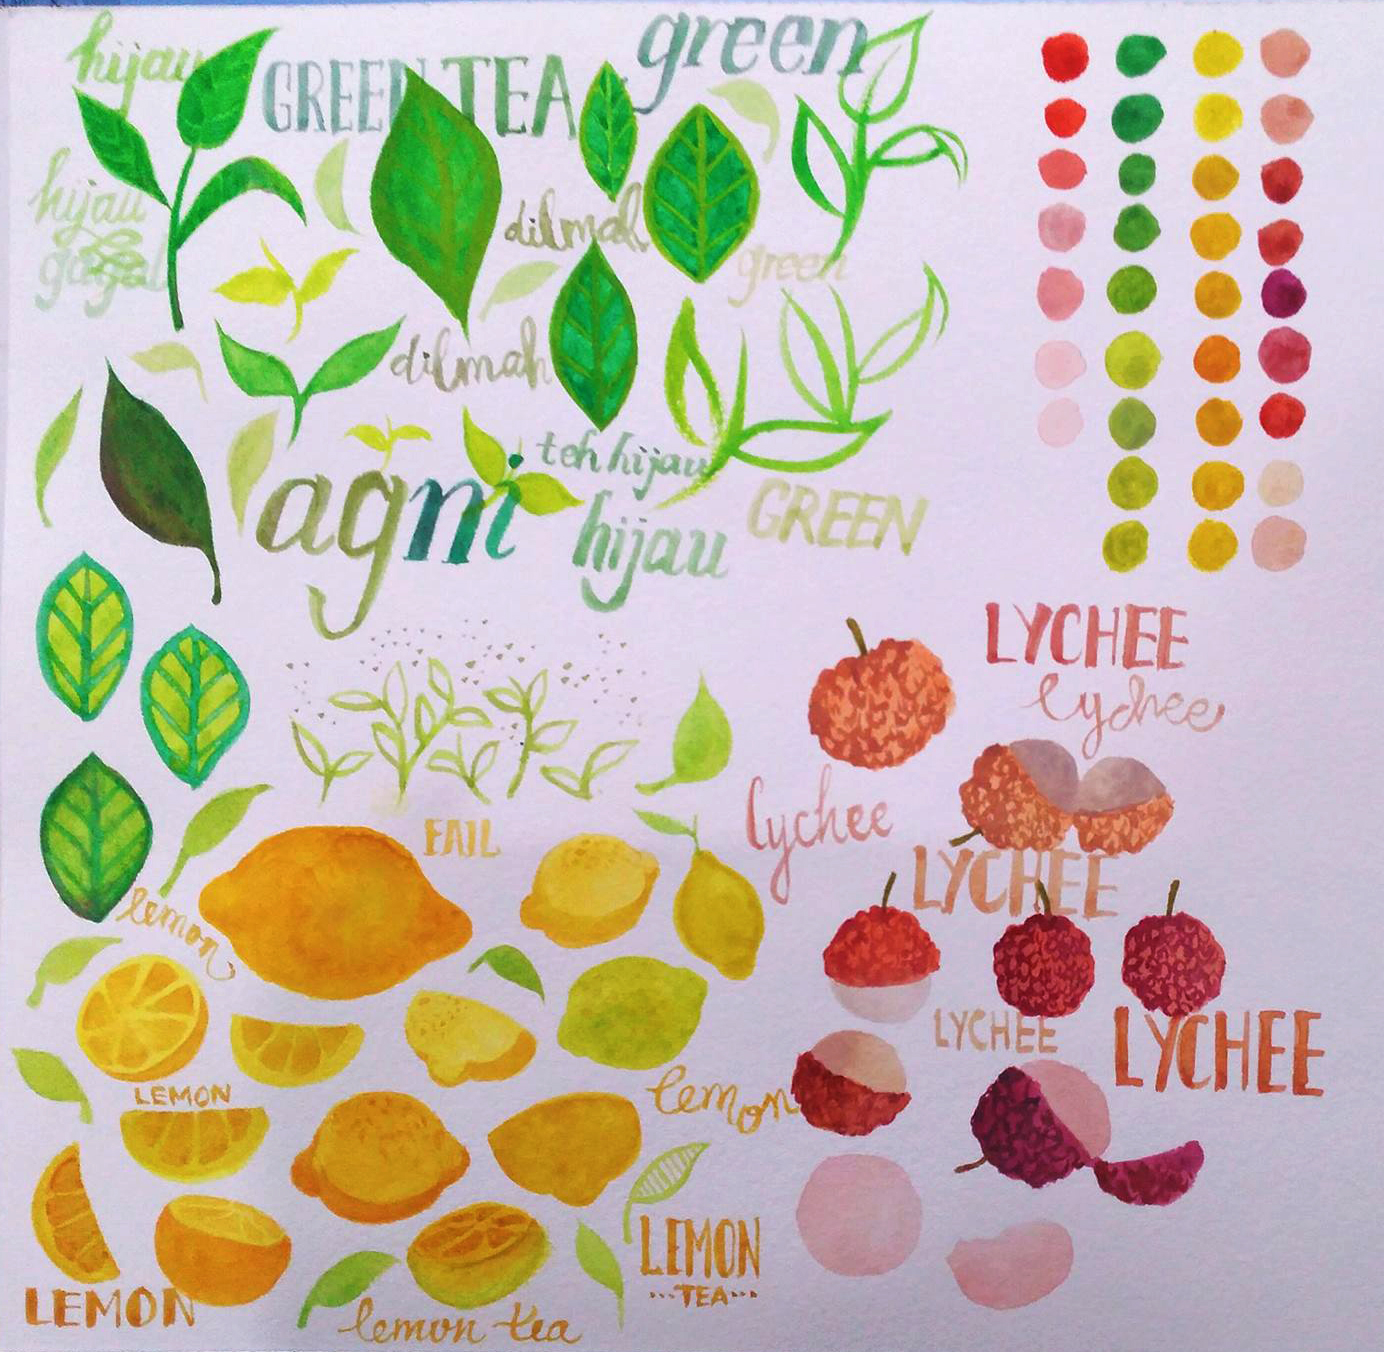 hijau
GREEN TEA
green
hijau
gagal
dilmah
green
dilmah
teh hijau
agni
hijau
GREEN
LYCHEE
lychee
lychee
FAIL
LYCHEE
lemon
LYCHEE
LYCHEE
LEMON
lemon
LEMON
TEA
LEMON
lemon tea